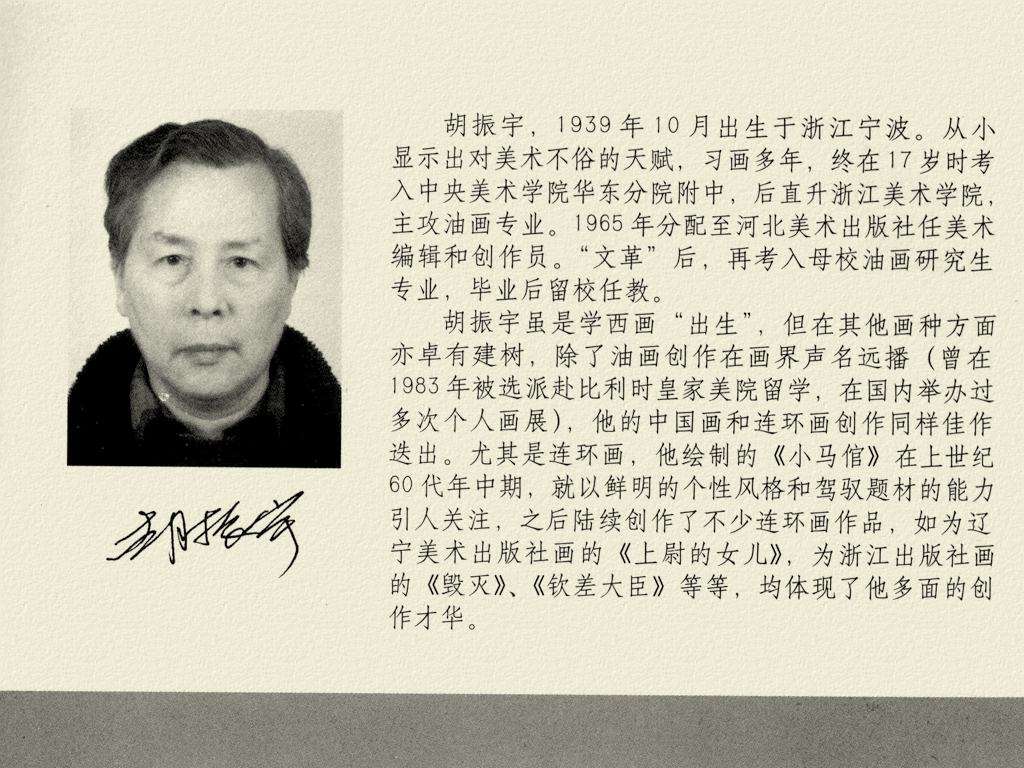 胡振宇，1939年10月出生于浙江宁波。从小
显示出对美术不俗的天赋，习画多年，终在17岁时考
入中央美术学院华东分院附中，后直升浙江美术学院，
主攻油画专业。1965年分配至河北美术出版社任美术
编辑和创作员。“文革”后，再考入母校油画研究生
专业，毕业后留校任教。
胡振宇虽是学西画“出生”，但在其他画种方面
亦卓有建树，除了油画创作在画界声名远播（曾在
1983年被选派赴比利时皇家美院留学，在国内举办过
多次个人画展），他的中国画和连环画创作同样佳作
迭出。尤其是连环画，他绘制的《小马倌》在上世纪
60代年中期，就以鲜明的个性风格和驾驭题材的能力
引人关注，之后陆续创作了不少连环画作品，如为辽
宁美术出版社画的《上尉的女儿》，为浙江出版社画
的《毁灭》、《钦差大臣》等等，均体现了他多面的创
作才华。
胡振宇